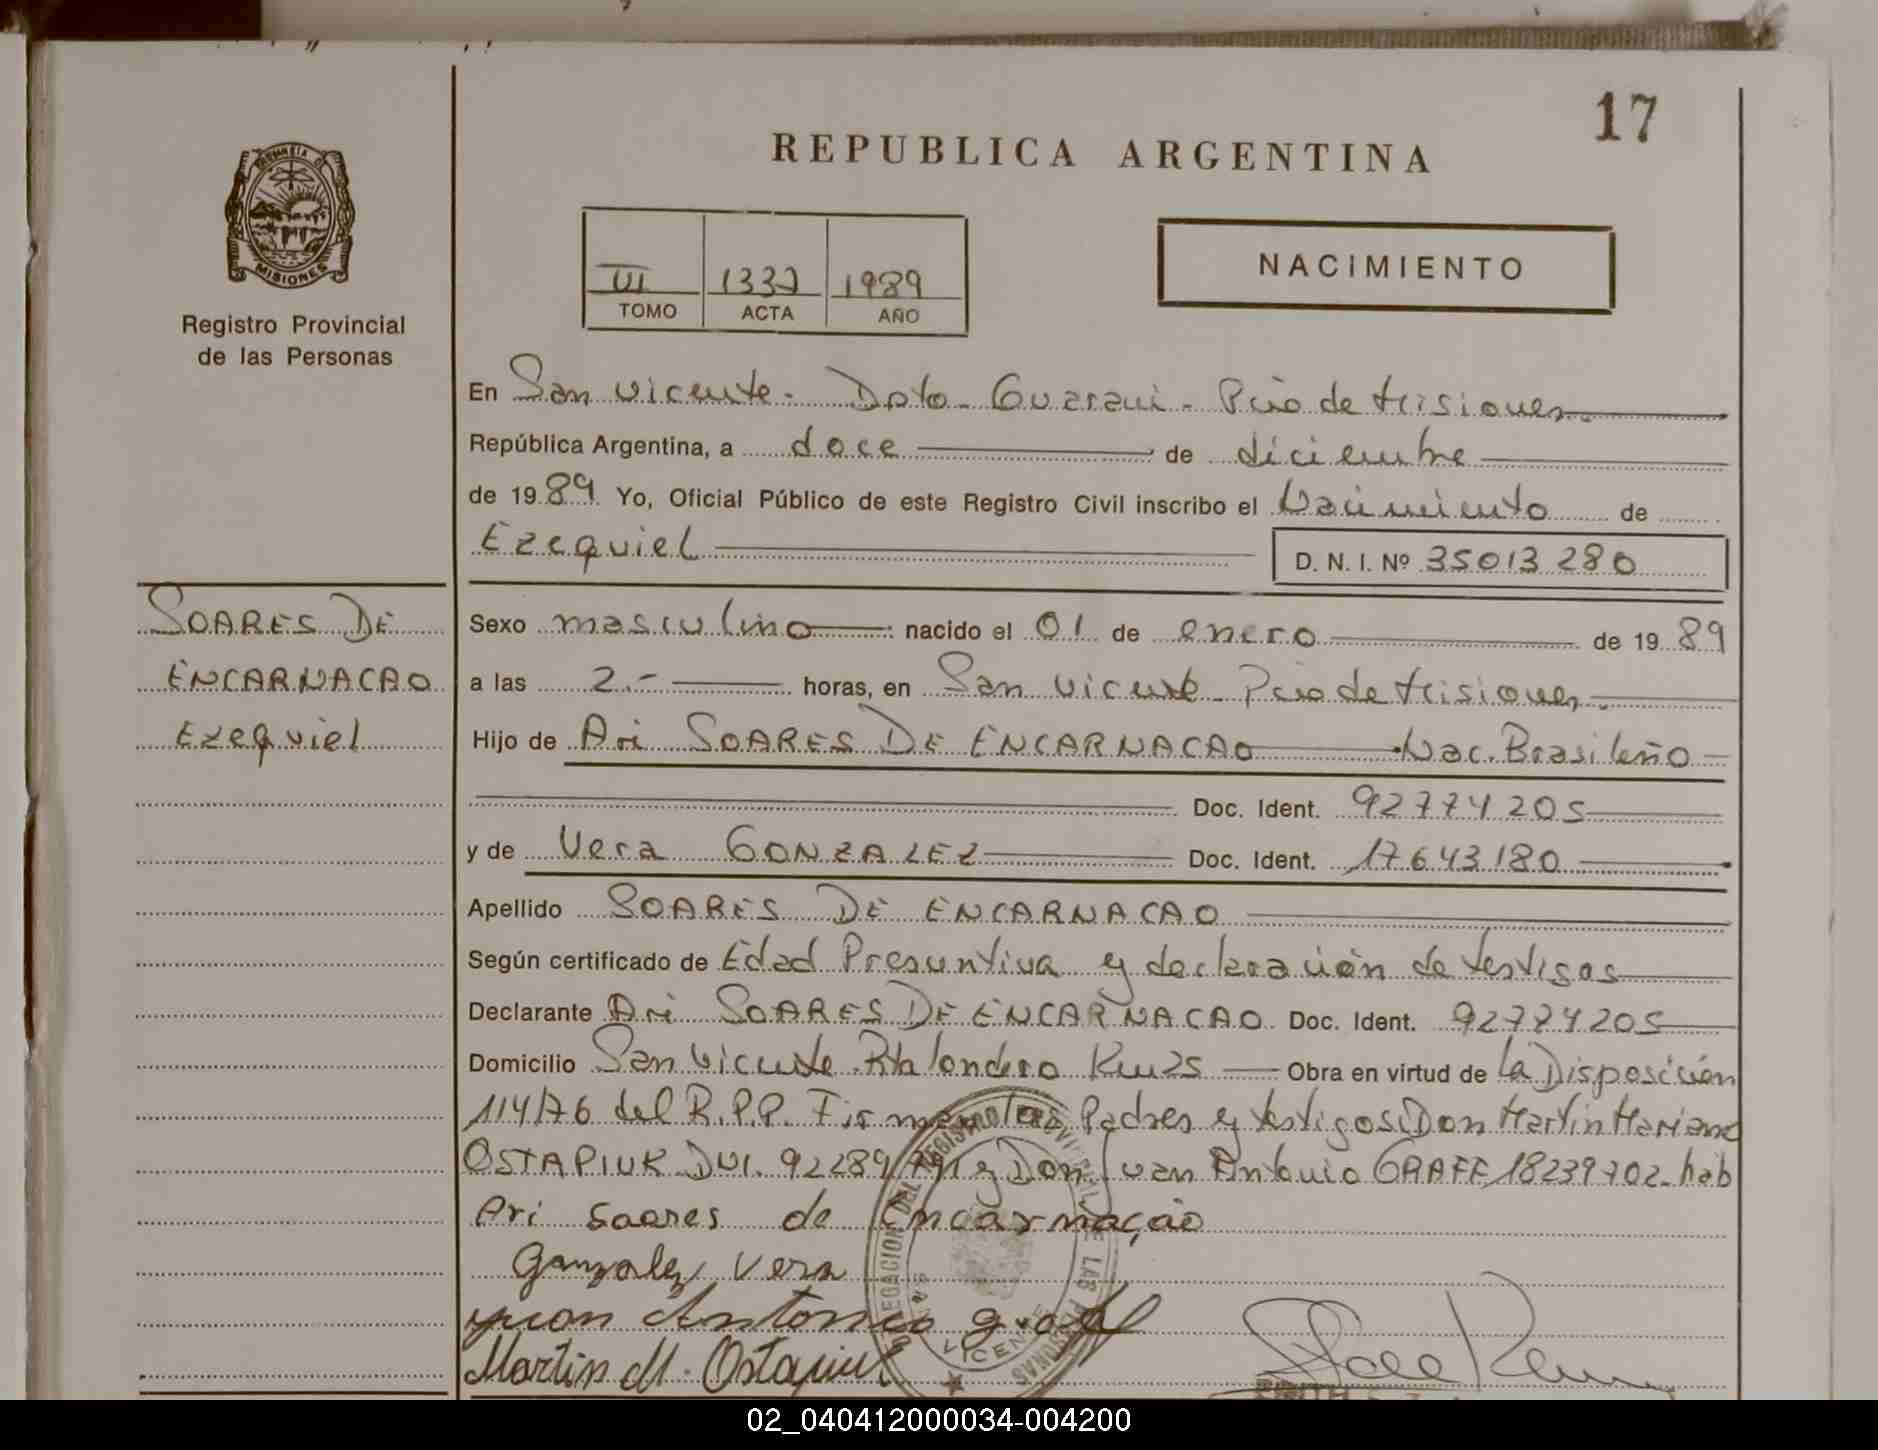 17
REPUBLICA ARGENTINA
PROVINCIA DE
MISIONES
Registro Provincial
de las Personas
VI 1332 1989
TOMO ACTA AÑO
NACIMIENTO
En San Vicente - Dpto - Guarani - Pcia de Misiones
República Argentina, a doce de diciembre
de 1989 Yo, Oficial Público de este Registro Civil inscribo el Nacimiento de
Ezequiel D. N. I. Nº 35013280
SOARES DE
ENCARNACAO
Ezequiel
Sexo masculino nacido el 01 de enero de 1989
a las 2.- horas, en San Vicente - Pcia de Misiones
Hijo de Ari SOARES DE ENCARNACAO Nac. Brasileño
Doc. Ident. 92774205
y de Vera GONZALEZ Doc. Ident. 17643180
Apellido SOARES DE ENCARNACAO
Según certificado de Edad Presuntiva y declaración de testigos
Declarante Ari SOARES DE ENCARNACAO Doc. Ident. 92774205
Domicilio San Vicente Obra en virtud de la Disposición
114/76 del R.P.P. Firman los Padres y testigos Don Martin Mariano
OSTAPIUK DNI. 92289791 y Don Juan Antonio GRAFF 18239702 - hab
Ari Soares de Encarnação
Gonzalez Vera
Juan Antonio graff
Martin M. Ostapiuk
02_040412000034-004200